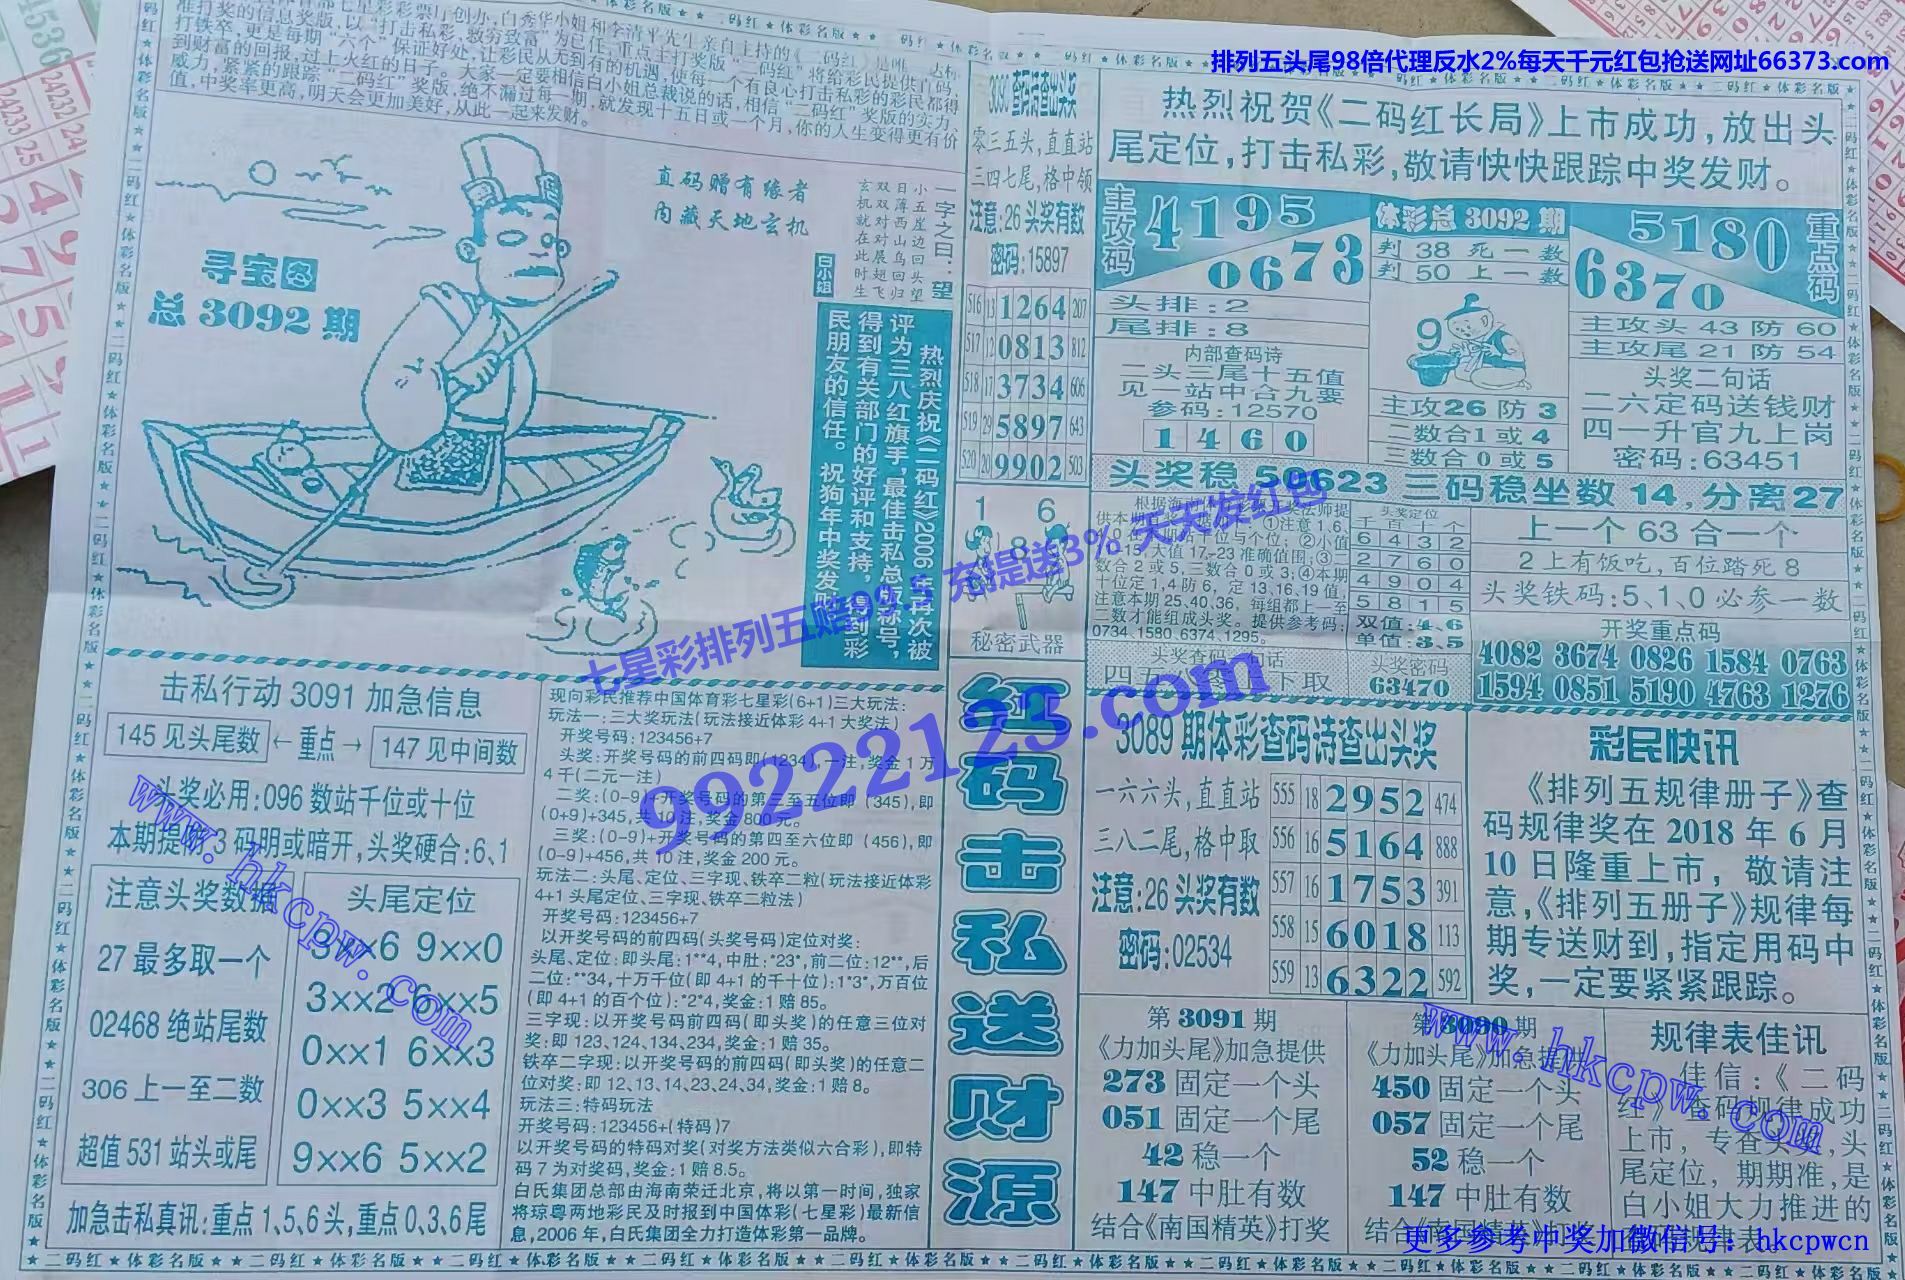 排列五头尾98倍代理反水2%每天千元红包抢送网址66373.com
到财富的回报,过上火红的日子。大家一定要相信白小姐总裁说的话,相信“二码红”奖版的实力、
威力,紧紧的跟踪“二码红”奖版,绝不漏过每一期,就发现十五日或一个月,你的人生变得更有价
值,中奖率更高,明天会更加美好,从此一起来发财。
直码赠有缘者
内藏天地玄机
寻宝图
总 3092 期
一字之曰:望
小五崖边回头望
日薄西山鸟回归
双双对对展翅飞
玄机就在此时生
白小姐
热烈庆祝《二码红》2006年再次被
评为三八红旗手,最佳击私总版称号,
得到有关部门的好评和支持,得到彩
民朋友的信任。祝狗年中奖发财
3090 查码诗查出头奖
零三五头,直直站
三四七尾,格中领
注意:26 头奖有数
密码:15897
516 13 1264 207
517 12 0813 812
518 17 3734 606
519 29 5897 643
520 20 9902 503
1 6
8
秘密武器
红码击私送财源
热烈祝贺《二码红长局》上市成功,放出头
尾定位,打击私彩,敬请快快跟踪中奖发财。
主攻码
4195
0673
体彩总 3092 期
判 38 死一数
判 50 上一数
5180
6370
重点码
头排:2
尾排:8
内部查码诗
二头三尾十五值
见一站中合九要
参码:12570
1 4 6 0
9
主攻26 防 3
二数合 1 或 4
三数合 0 或 5
主攻头 43 防 60
主攻尾 21 防 54
头奖二句话
二六定码送钱财
四一升官九上岗
密码:63451
头奖稳 50623 三码稳坐数 14,分离27
十位定 1,4 防 6, 定 13,16,19 值,
注意本期 25,40,36, 每组都上一至
二数才能组成头奖。提供参考码:
0734,1580,6374,1295。
头奖定位
千百十个
6 4 3 2
2 7 6 0
4 9 0 4
5 8 1 5
双值:4、6
单值:3、5
头奖密码
63470
上一个 63 合一个
2 上有饭吃,百位踏死 8
头奖铁码:5、1、0 必参一数
开奖重点码
4082 3674 0826 1584 0763
1594 0851 5190 4763 1276
击私行动 3091 加急信息
145 见头尾数 ←重点→ 147 见中间数
头奖必用:096 数站千位或十位
本期提防 3 码明或暗开,头奖硬合:6、1
注意头奖数据
27 最多取一个
02468 绝站尾数
306 上一至二数
超值 531 站头或尾
头尾定位
6××6 9××0
3××2 6××5
0××1 6××3
0××3 5××4
9××6 5××2
加急击私真讯:重点 1、5、6 头,重点 0、3、6 尾
现向彩民推荐中国体育彩七星彩(6+1)三大玩法:
玩法一:三大奖玩法(玩法接近体彩 4+1 大奖法)
开奖号码:123456+7
头奖:开奖号码的前四码即(1234),一注,奖金 1 万
4 千(二元一注)
二奖:(0-9)+开奖号码的第三至五位即 (345),即
(0+9)+345,共 10 注,奖金 800 元。
三奖:(0-9)+开奖号码的第四至六位即 (456),即
(0-9)+456,共 10 注,奖金 200 元。
玩法二:头尾、定位、三字现、铁卒二粒(玩法接近体彩
4+1 头尾定位、三字现、铁卒二粒法)
开奖号码:123456+7
以开奖号码的前四码(头奖号码)定位对奖:
头尾、定位:即头尾:1**4,中肚:*23*,前二位:12**,后
二位:**34,十万千位(即 4+1 的千十位):1*3*,万百位
(即 4+1 的百个位):*2*4,奖金:1 赔 85。
三字现:以开奖号码前四码(即头奖)的任意三位对
奖:即 123、124、134、234,奖金:1 赔 35。
铁卒二字现:以开奖号码的前四码(即头奖)的任意二
位对奖:即 12、13、14、23、24、34,奖金:1 赔 8。
玩法三:特码玩法
开奖号码:123456+(特码)7
以开奖号码的特码对奖(对奖方法类似六合彩),即特
码 7 为对奖码,奖金:1 赔 8.5。
白氏集团总部由海南荣迁北京,将以第一时间,独家
将琼粤两地彩民及时报到中国体彩(七星彩)最新信
息,2006 年,白氏集团全力打造体彩第一品牌。
3089 期体彩查码诗查出头奖
一六六头,直直站
三八二尾,格中取
注意:26 头奖有数
密码:02534
555 18 2952 474
556 16 5164 888
557 16 1753 391
558 15 6018 113
559 13 6322 592
彩民快讯
《排列五规律册子》查
码规律奖在 2018 年 6 月
10 日隆重上市, 敬请注
意,《排列五册子》规律每
期专送财到,指定用码中
奖,一定要紧紧跟踪。
第 3091 期
《力加头尾》加急提供
273 固定一个头
051 固定一个尾
42 稳一个
147 中肚有数
结合《南国精英》打奖
第 3090 期
《力加头尾》加急提供
450 固定一个头
057 固定一个尾
52 稳一个
147 中肚有数
结合《南国精英》打奖
规律表佳讯
佳信:《二码
红》查码规律成功
上市, 专查头奖,头
尾定位, 期期准,是
白小姐大力推进的
七星彩排列五赔99.5 充提送3% 天天发红包
99222123.com
www.hkcpw.com
www.hkcpw.com
更多参考中奖加微信号: hkcpwcn
★二码红★体彩名版★